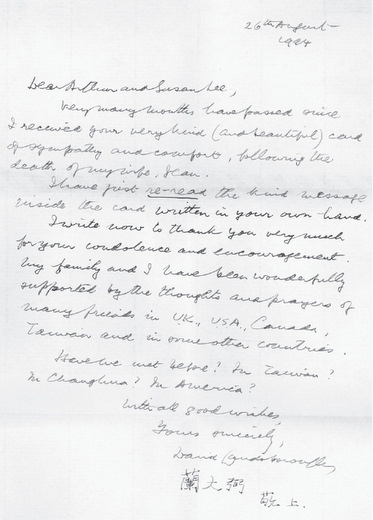 26th August
1994
Dear Arthur and Susan Lee,
Very many months have passed since
I received your very kind (and beautiful) card
of sympathy and comfort, following the
death of my wife, Jean.
I have just re-read the kind message
inside the card written in your own hand.
I write now to thank you very much
for your condolence and encouragement.
My family and I have been wonderfully
supported by the thoughts and prayers of
many friends in U.K., USA., Canada,
Taiwan and in some other countries.
Have we met before? In Taiwan?
In Changhua? In America?
With all good wishes,
Yours sincerely,
David Landsborough
蘭大弼
敬上.